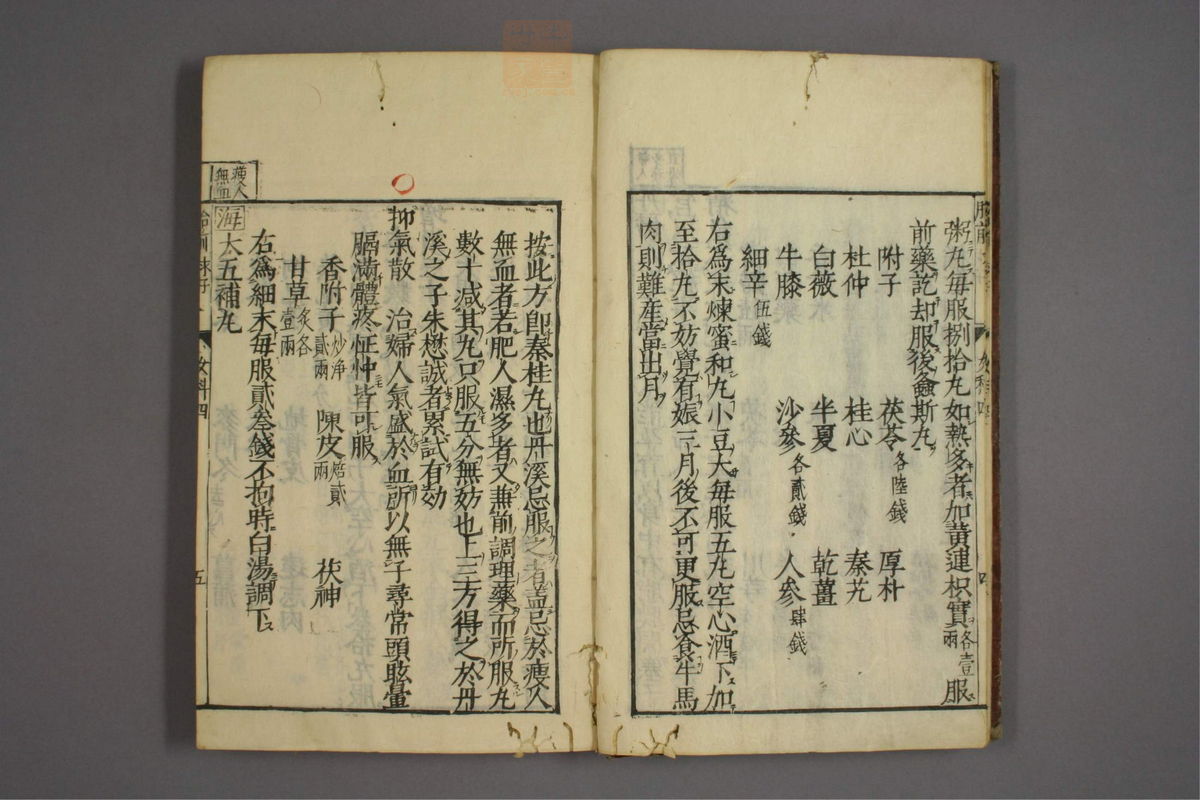 粥丸毎服捌拾丸如熱多者加黄連枳實各壹兩服
前藥訖却服後螽斯丸
附子 茯苓各陸錢 厚朴
杜仲 桂心 秦艽
白薇 半夏 乾薑
牛膝 沙參各貳錢 人參肆錢
細辛伍錢
右爲末煉蜜和丸小豆大毎服五丸空心酒下加
至拾丸不妨覺有娠三月後不可更服忌食牛馬
肉則難産當出月
按此方即秦桂丸也丹溪忌服之者盖忌於瘦人
無血者若肥人濕多者又兼前調理藥而所服丸
數十减其九只服五分無妨也上三方得之於丹
溪之子朱懋誠者累試有効
抑氣散 治婦人氣盛於血所以無子尋常頭眩暈
膈滿體疼怔忡皆可服
香附子炒淨貳兩 陳皮焙貳兩 茯神
甘草炙各壹兩
右爲細末毎服貳叁錢不拘時白湯調下
瘦人無血
海大五補丸
女科四
五